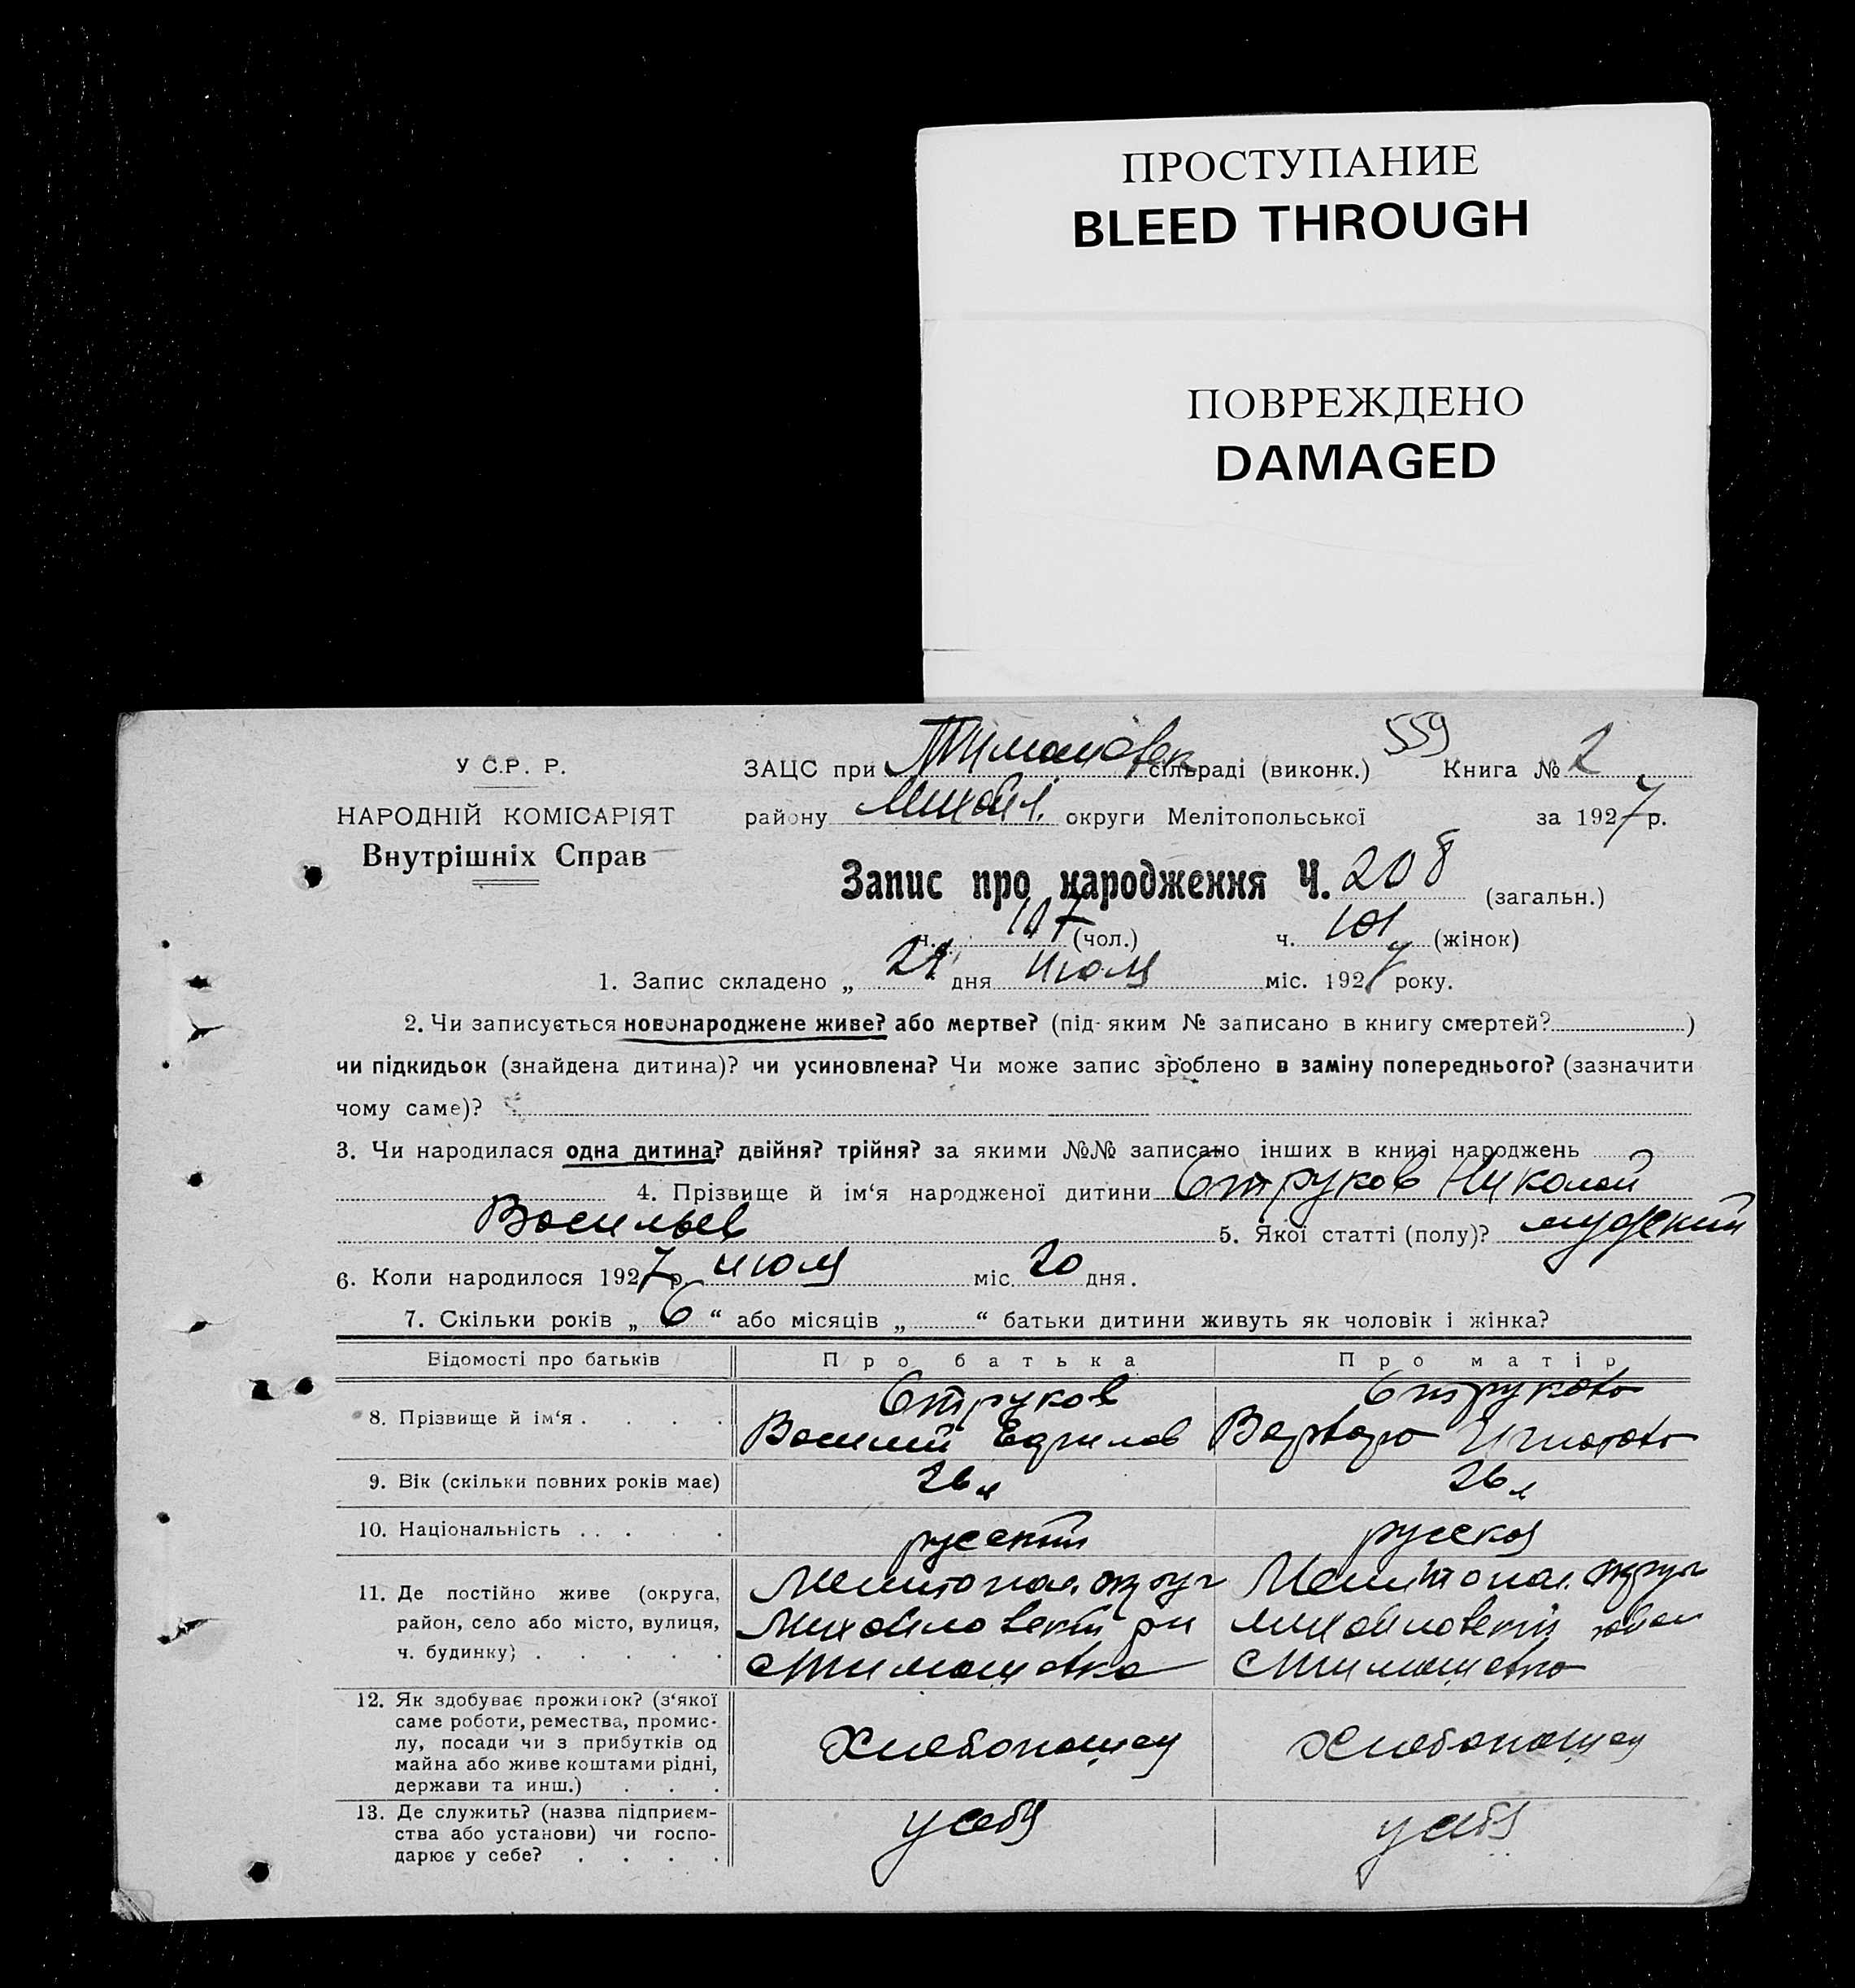 ПРОСТУПАНИЕ
BLEED THROUGH
ПОВРЕЖДЕНО
DAMAGED
559
У С.Р. Р.
ЗАЦС при Тимашовск сільраді (виконк.) Книга № 2
НАРОДНІЙ КОМІСАРІЯТ
району Михайл. округи Мелітопольської за 1927 р.
Внутрішніх Справ
Запис про народження Ч. 208 (загальн.)
ч. 107 (чол.) ч. 101 (жінок)
1. Запис складено „ дня июля міс. 1927 року.
2. Чи записується новонароджене живе? або мертве? (під яким № записано в книгу смертей? )
чи підкидьок (знайдена дитина)? чи усиновлена? Чи може запис зроблено в заміну попереднього? (зазначити
чому саме)?
3. Чи народилася одна дитина? двійня? трійня? за якими №№ записано інших в книзі народжень
4. Прізвище й ім‘я народженої дитини Струков Николай
Васильев 5. Якої статті (полу)? мужский
6. Коли народилося 1927 р. июля міс. 20 дня.
7. Скільки років „ 6 “ або місяців „ “ батьки дитини живуть як чоловік і жінка?
Відомості про батьків Про батька Про матір
8. Прізвище й ім‘я . . . . Струков Струкова
Василий Варвара
9. Вік (скільки повних років має) 26 л 26 л
10. Національність . . . . . русский русская
11. Де постійно живе (округа, Мелитопол. округ Мелитопол. округ
район, село або місто, вулиця, Михайловский рн Михайловский район
ч. будинку; . . . . . с Тимашевка с Тимашевка
12. Як здобуває прожиток? (з‘якої
саме роботи, ремества, промис-
лу, посади чи з прибутків од Хлебопашец Хлебопашец
майна або живе коштами рідні,
держави та инш.) . . .
13. Де служить? (назва підприєм- у себя у себя
ства або установи) чи госпо-
дарює у себе? . . . .